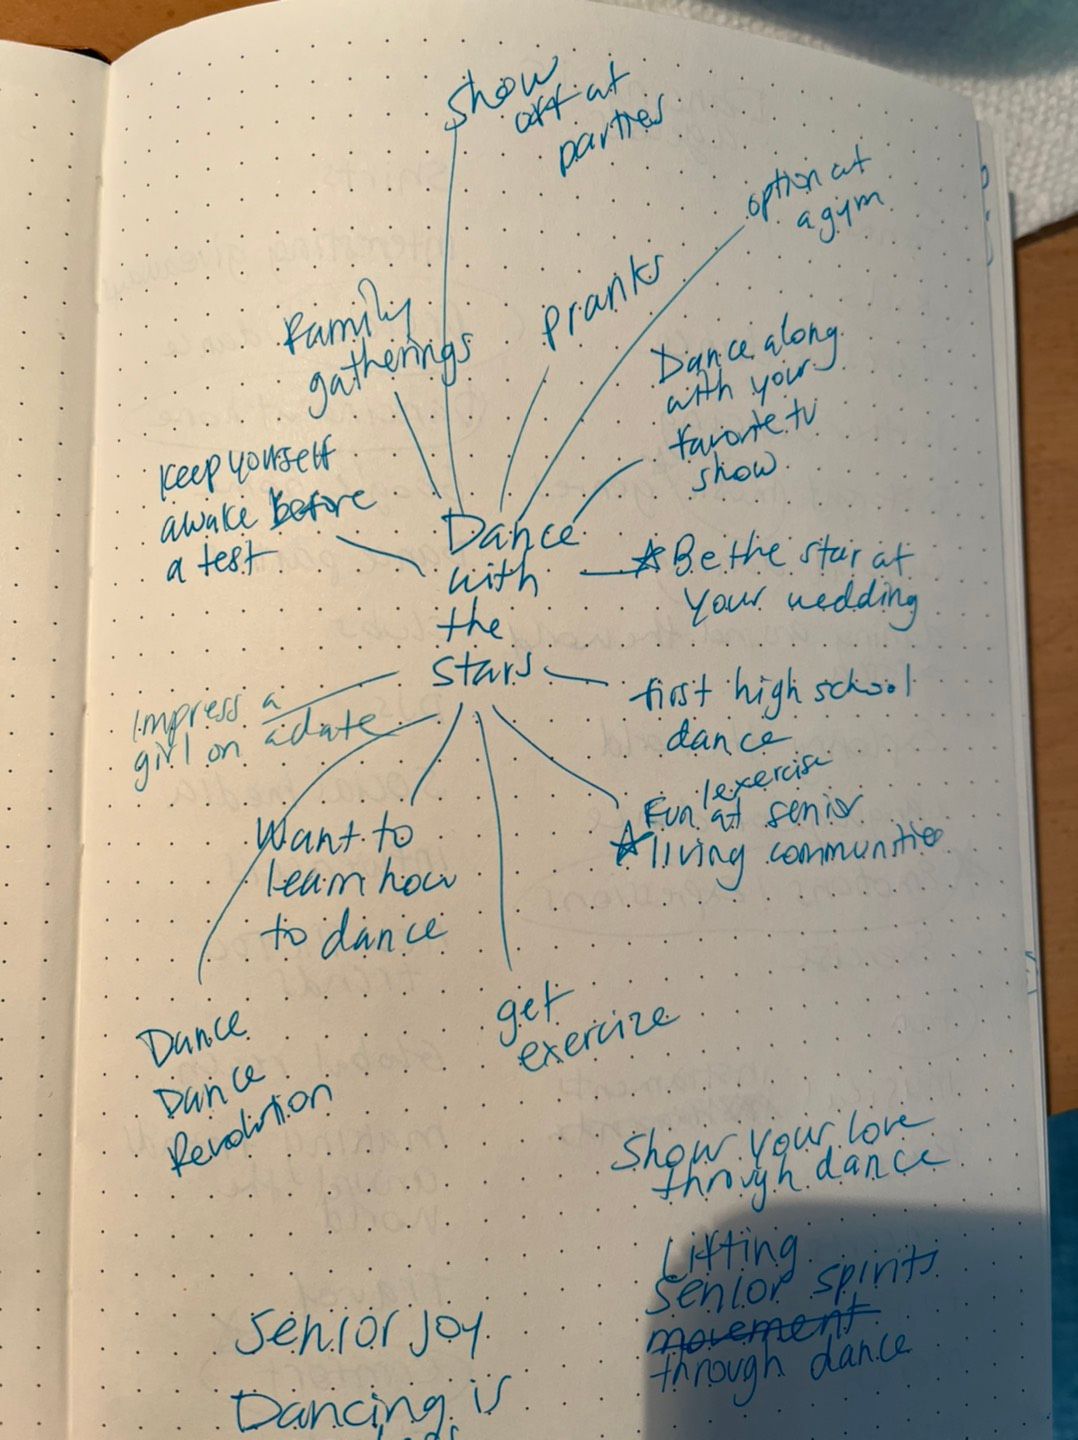 Show
off at
parties
option at
a gym
Family
gatherings
pranks
Dance along
with your
favorite tv
show
Keep yourself
awake before
a test
Dance
with
the
stars
Be the star at
your wedding
first high school
dance
Impress a
girl on a date
Fun /exercise
at senior
living communities
Want to
learn how
to dance
Dance
Dance
Revolution
get
exercize
Show your love
through dance
Lifting
senior spirits
movement
through dance
Senior joy
Dancing is